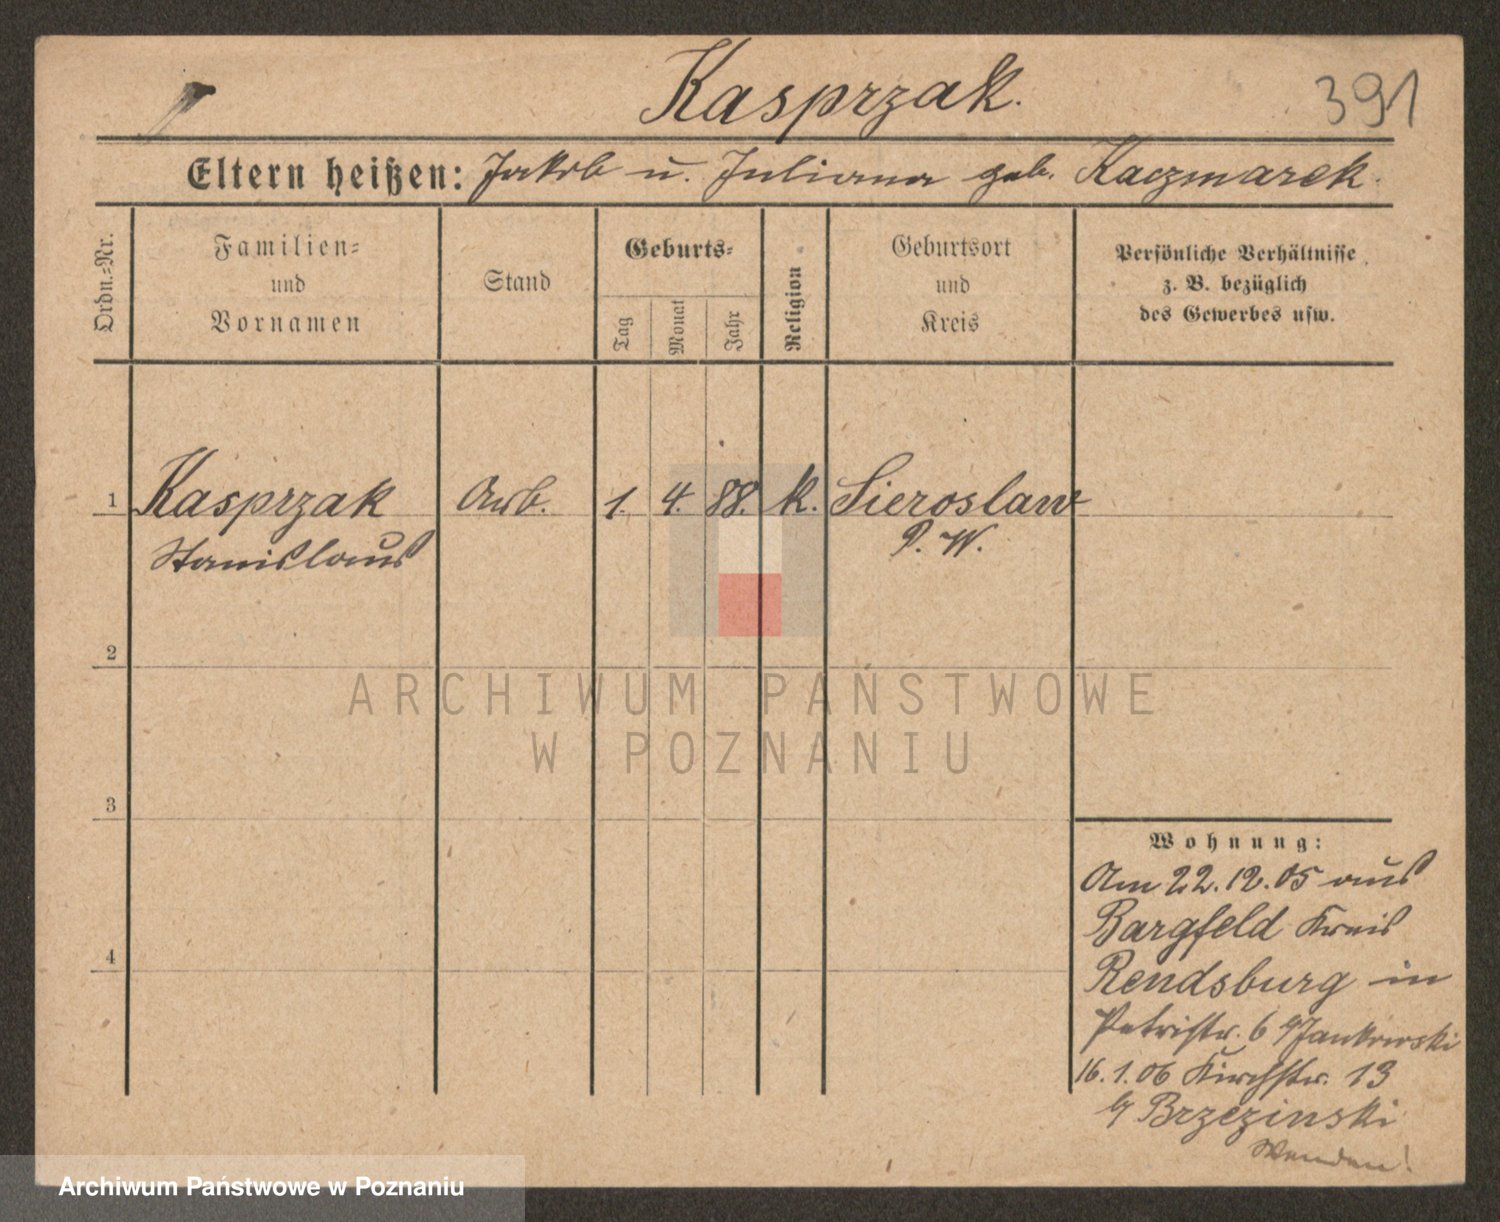 Kasprzak.
391
Eltern heißen: Jakob u. Juliana geb. Kaczmarek.
Ordn.=Nr.
Familien=
und
Vornamen
Stand
Geburts=
Tag
Monat
Jahr
Religion
Geburtsort
und
Kreis
Persönliche Verhältnisse
z. B. bezüglich
des Gewerbes usw.
1 Kasprzak Arb. 1. 4. 88. k. Sieroslaw
Stanislaus P. W.
2
ARCHIWUM PAŃSTWOWE
W POZNANIU
3
Wohnung:
Am 22.12.05 aus
Bargfeld Kreis
4
Rendsburg in
Petristr. 6 b/Jankowski
16.1.06 Kirchstr. 13
b/ Brzezinski
Wenden!
Archiwum Państwowe w Poznaniu